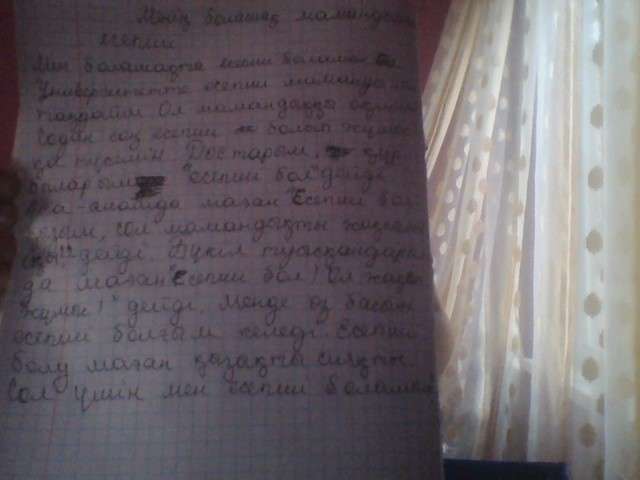 Менің болашақ мамандығым
есепші
Мен болашақта есепші боламын
Университетте есепші
таңдаймын Ол мамандықды оқимын
Содан соң есепші болып жұмыс
Достарым, құр
быларым "есепші бол" дейді
ата-анамда маған "Есепші бол
қызым, сол мамандықты
дейді Бүкіл туысқандарым
да маған "Есепші бол! Ол жақсы
жұмыс!" дейді. Менде өз басым
есепші болғым келеді Есепші
болу маған қызықты сияқты.
Сол үшін мен есепші боламын